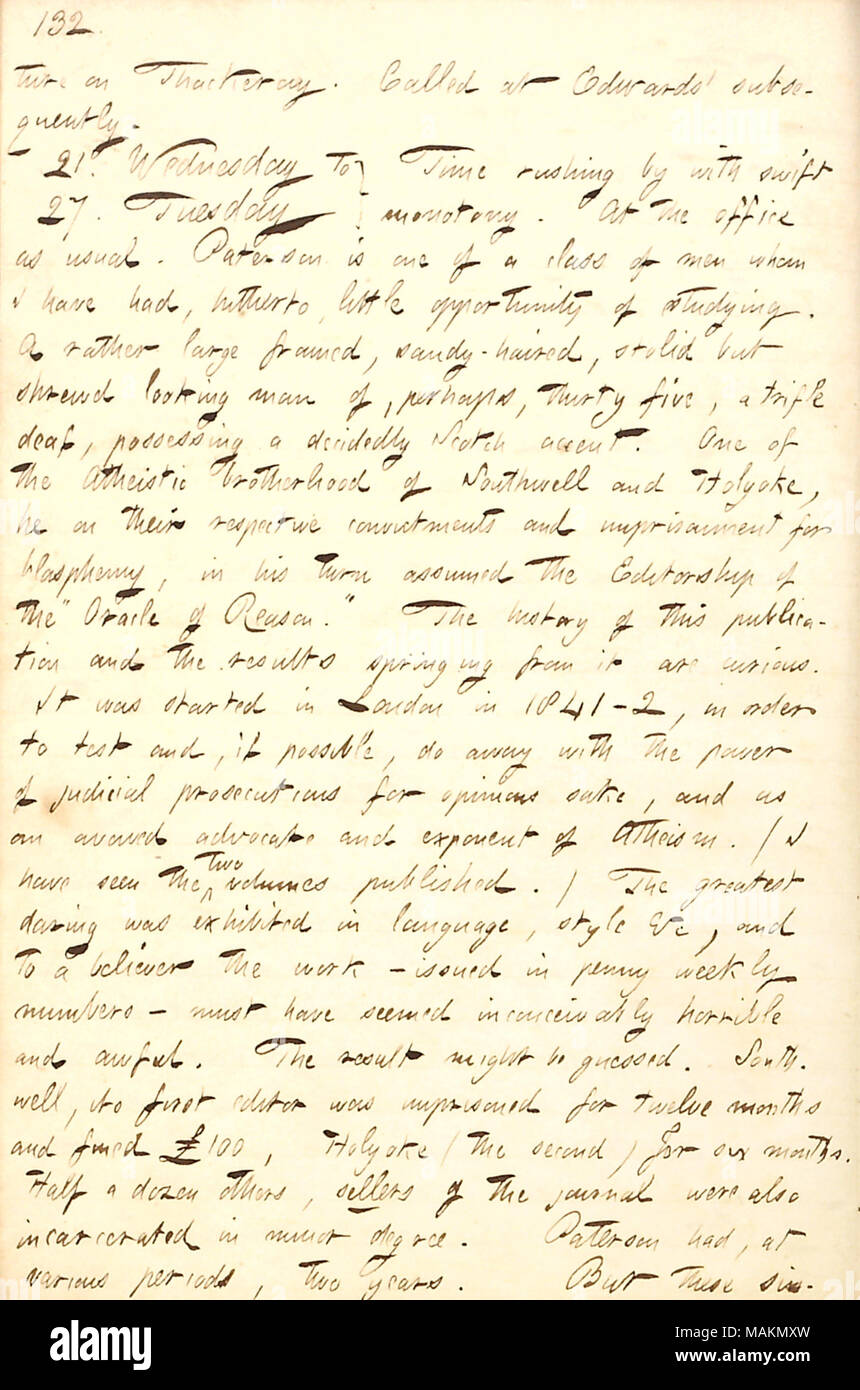 132.
ture on Thackeray. Called at Edwards' subse-
quently.
21. Wednesday to } Time rushing by with swift
27. Tuesday } monotony. At the office
as usual. Paterson is one of a class of men whom
I have had, hitherto, little opportunity of studying.
A rather large framed, sandy-haired, stolid but
shrewd looking man of, perhaps, thirty five, a trifle
deaf, possessing a decidedly Scotch accent. One of
the Atheistic brotherhood of Southwell and Holyoke,
he on their respective convictments and imprisonment for
blasphemy, in his turn assumed the Editorship of
the "Oracle of Reason." The history of this publica-
tion and the results springing from it are curious.
It was started in London in 1841-2, in order
to test and, if possible, do away with the power
of judicial prosecutions for opinions sake, and as
an avowed advocate and exponent of Atheism. (I
have seen the two volumes published.) The greatest
daring was exhibited in language, style &c, and
to a believer the work - issued in penny weekly
numbers - must have seemed inconceivably horrible
and awful. The result might be guessed. South-
well, its first editor was imprisoned for twelve months
and fined £100, Holyoke (the second) for six months.
Half a dozen others, sellers of the journal were also
incarcerated in minor degree. Paterson had, at
various periods, two years. But these sin-
alamy
Image ID: MAKMXW
www.alamy.com